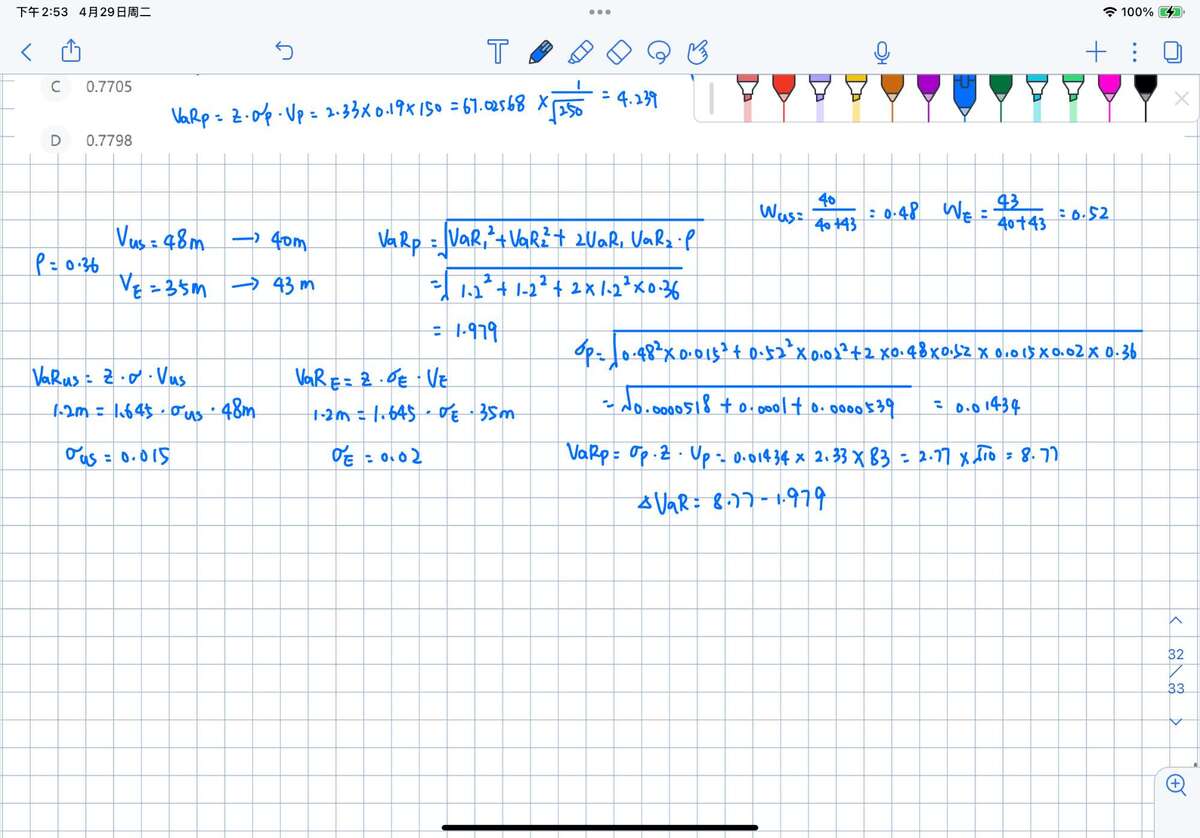 下午2:53 4月29日周二
100%
C 0.7705
VaRp = z·σp·Vp = 2.33×0.19×150 = 67.02568 × 1/√250 = 4.239
D 0.7798
Wus = 40/(40+43) = 0.48 WE = 43/(40+43) = 0.52
ρ = 0.36
Vus = 48m → 40m
VE = 35m → 43m
VaRp = √(VaR₁² + VaR₂² + 2VaR₁ VaR₂·ρ)
= √(1.2² + 1.2² + 2×1.2²×0.36)
= 1.979
σp = √(0.48²×0.015² + 0.52²×0.02² + 2×0.48×0.52×0.015×0.02×0.36)
= √(0.0000518 + 0.0001 + 0.0000539) = 0.01434
VaRus = z·σ·Vus
1.2m = 1.645·σus·48m
σus = 0.015
VaRE = z·σE·VE
1.2m = 1.645·σE·35m
σE = 0.02
VaRp = σp·z·Vp = 0.01434 × 2.33 × 83 = 2.77 × √10 = 8.77
ΔVaR = 8.77 - 1.979
32
/
33